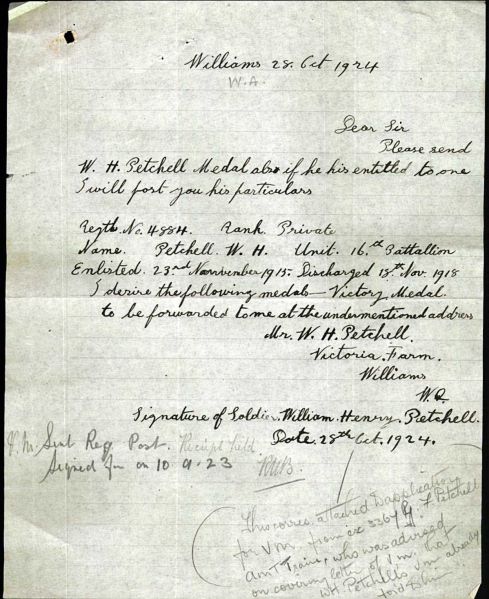 Williams 28. Oct 1924
W.A.
Dear Sir
Please send
W. H. Petchell Medal also if he his entitled to one
I will post you his particulars
Regtl. No. 4884. Rank Private
Name. Petchell. W. H. Unit. 16.th Battallion
Enlisted. 23rd November 1915. Discharged 18th Nov. 1918
I desire the following medals — Victory Medal.
to be forwarded to me at the undermentioned address
Mr. W. H. Petchell.
Victoria. Farm.
Williams
W.A.
Signature of Soldier. William. Henry. Petchell.
Date. 28th Oct. 1924.
V. M. Sent Reg Post. Receipt held.
Signed for on 10.9.23
This corres. attached to application
for V.M. from ex 3367 F Petchell
Amt Train, who was advised
on covering letter of V.M. that
WH Petchells V.M. already